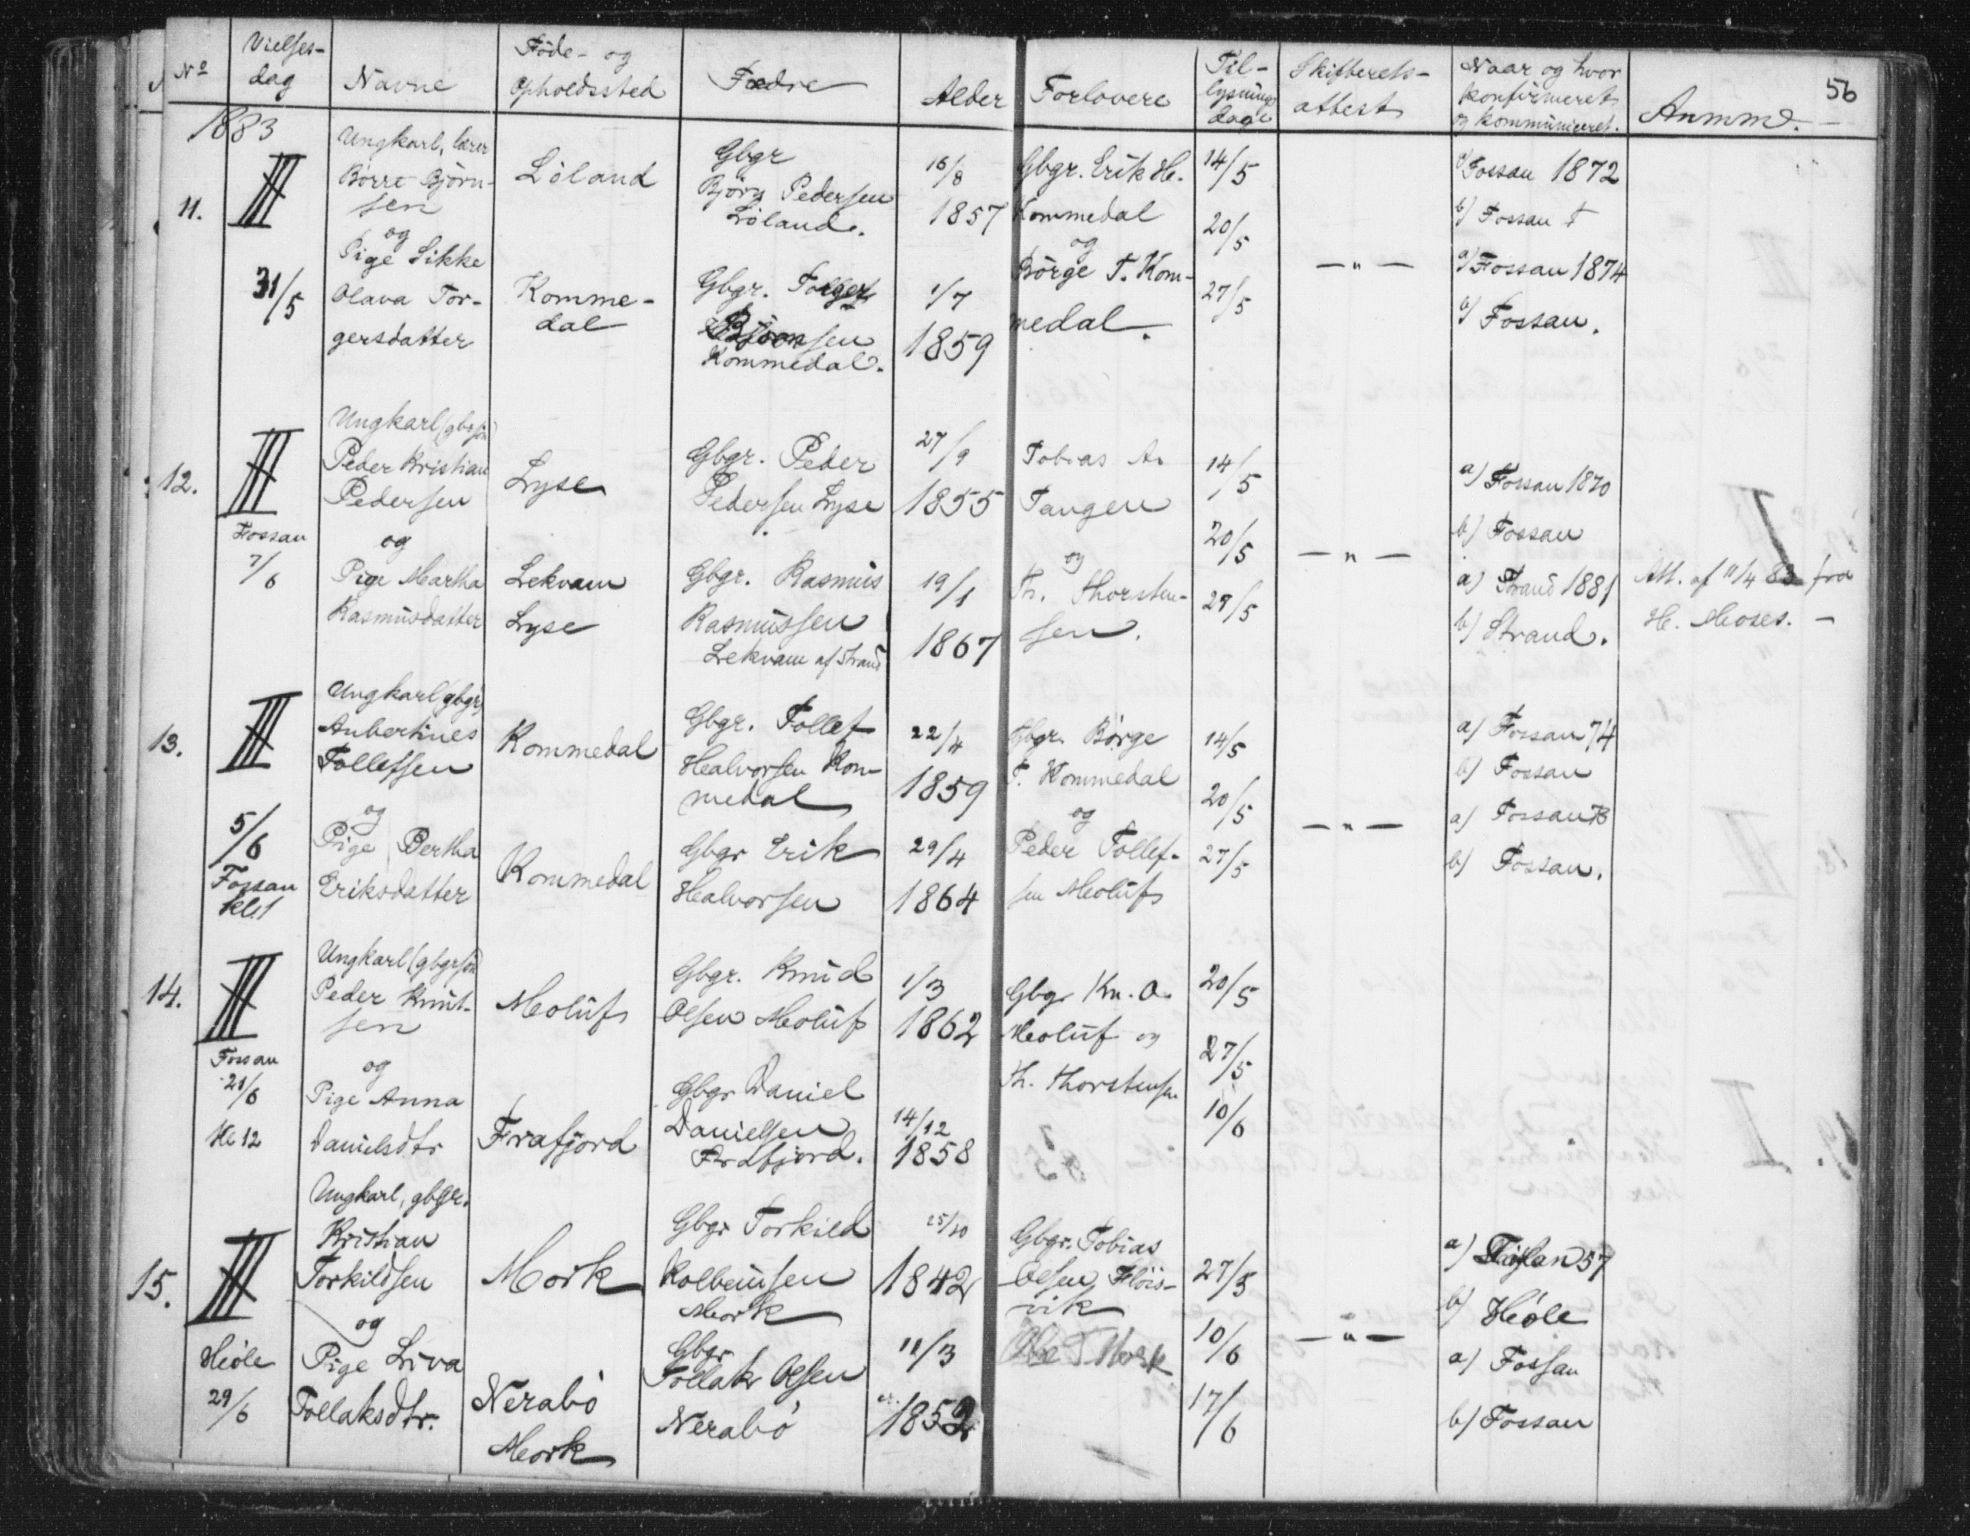 56
Nº
Vielses-
dag
Navne
Føde- og
Opholdssted
Fædre
Alder
Forlovere
Til-
lysnings
dage
Skifterets-
attest
Naar og hvor
konfirmeret
og kommuniceret.
Anmm.
1883
11.
III
31/5
Ungkarl, lærer
Børre Bjørn-
sen
og
Pige Sikke
Olava Tor-
gersdatter
Løland
Komme-
dal
Gbgr
Bjørn Pedersen
Løland.
Gbgr. Torger
Bjørnsen
Kommedal.
16/8
1857
1/7
1859
Gbgr. Erik H.
Kommedal
og
Børge T. Kom-
medal.
14/5
20/5
27/5
— „ —
a) Fossan 1872
b) Fossan
a) Fossan 1874
b) Fossan.
12.
III
Fossan
7/6
Ungkarl (gbrsøn)
Peder Kristian
Pedersen
og
Pige Martha
Rasmusdatter
Lyse
Lekvam
Lyse
Gbgr. Peder
Pedersen Lyse
Gbgr. Rasmus
Rasmussen
Lekvam af Strand
27/9
1855
19/1
1867
Tobias A.
Tangen
og
Th. Thorsten-
sen.
14/5
20/5
27/5
— „ —
a) Fossan 1870
b) Fossan
a) Strand 1881
b) Strand.
Att. af 11/4 83 fra
H. Moses. —
13.
III
5/6
Fossan
kl 1
Ungkarl (gbgr)
Anbertines
Tollefsen
og
Pige Bertha
Eriksdatter
Kommedal
Kommedal
Gbgr. Tollef
Halvorsen Kom-
medal
Gbgr Erik
Halvorsen
22/4
1859
29/4
1864
Gbgr. Børge
T. Kommedal
og
Peder Tollef-
sen Moluf
14/5
20/5
27/5
— „ —
a) Fossan 74
b) Fossan
a) Fossan 78
b) Fossan.
14.
III
Fossan
21/6
Kl 12
Ungkarl (gbgrsøn)
Peder Knut-
sen
og
Pige Anna
Danielsdtr
Moluf
Frafjord
Gbgr. Knud
Olsen Moluf
Gbgr Daniel
Danielsen
Frafjord.
1/3
1862
14/12
1858
Gbgr Kn. O.
Moluf og
Th. Thorstensen
20/5
27/5
10/6
15.
III
Høle
29/6
Ungkarl, gbgr.
Kristian
Torkildsen
og
Pige Liva
Tollaksdtr.
Mork
Nerabø
Mork
Gbgr Torkild
Kolbeinsen
Mork
Gbgr
Tollak Olsen
Nerabø
25/10
1842
11/3
1852
Gbgr. Tobias
Olsen Fløis-
vik
Ole T. Mork
27/5
10/6
17/6
— „ —
a) 57
b) Høle
a) Fossan
b) Fossan